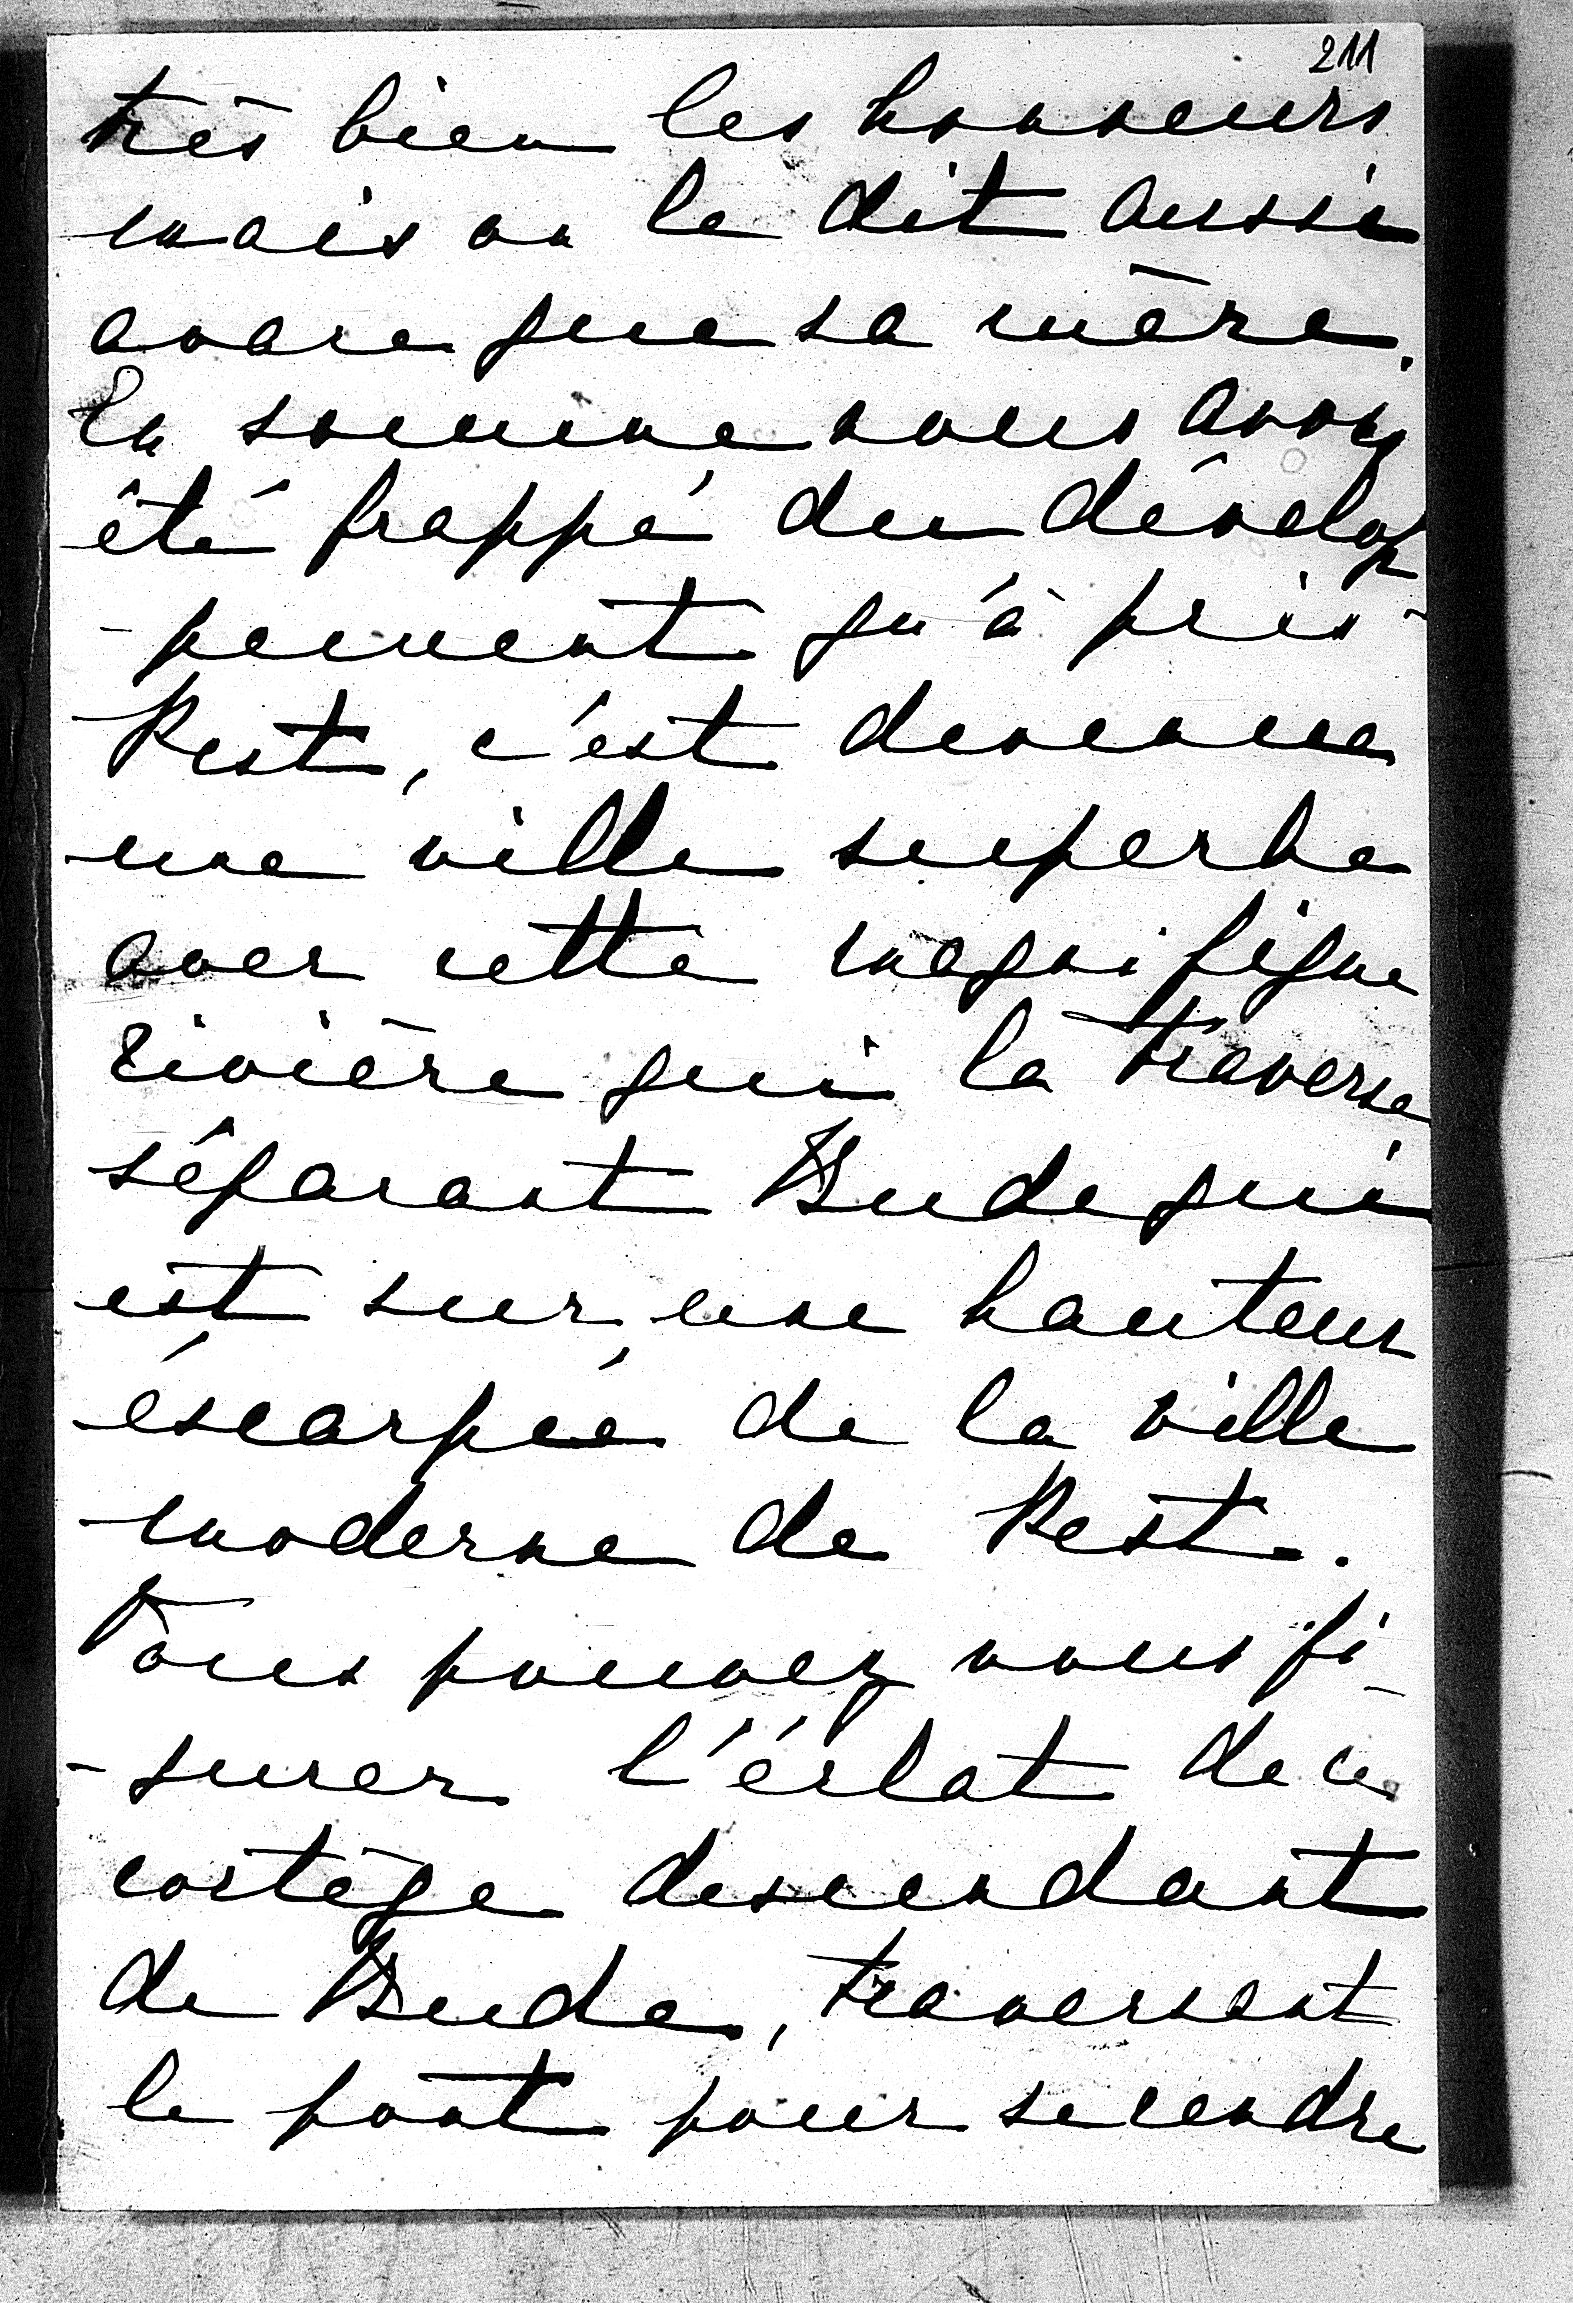 211
très bien les honneurs
mais on le dit aussi
avare que sa mère.
En somme nous avons
été frappé du dévelop
-pement qu'à pris
Pest, c'est devenue
une ville superbe
avec cette magnifique
rivière qui la traverse
séparant Bude qui
est sur une hauteur
éscarpée de la ville
moderne de Pest.
Vous pouvez vous fi-
-gurer l'éclat de ce
cortège descendant
de Bude, traversant
le pont pour se rendre